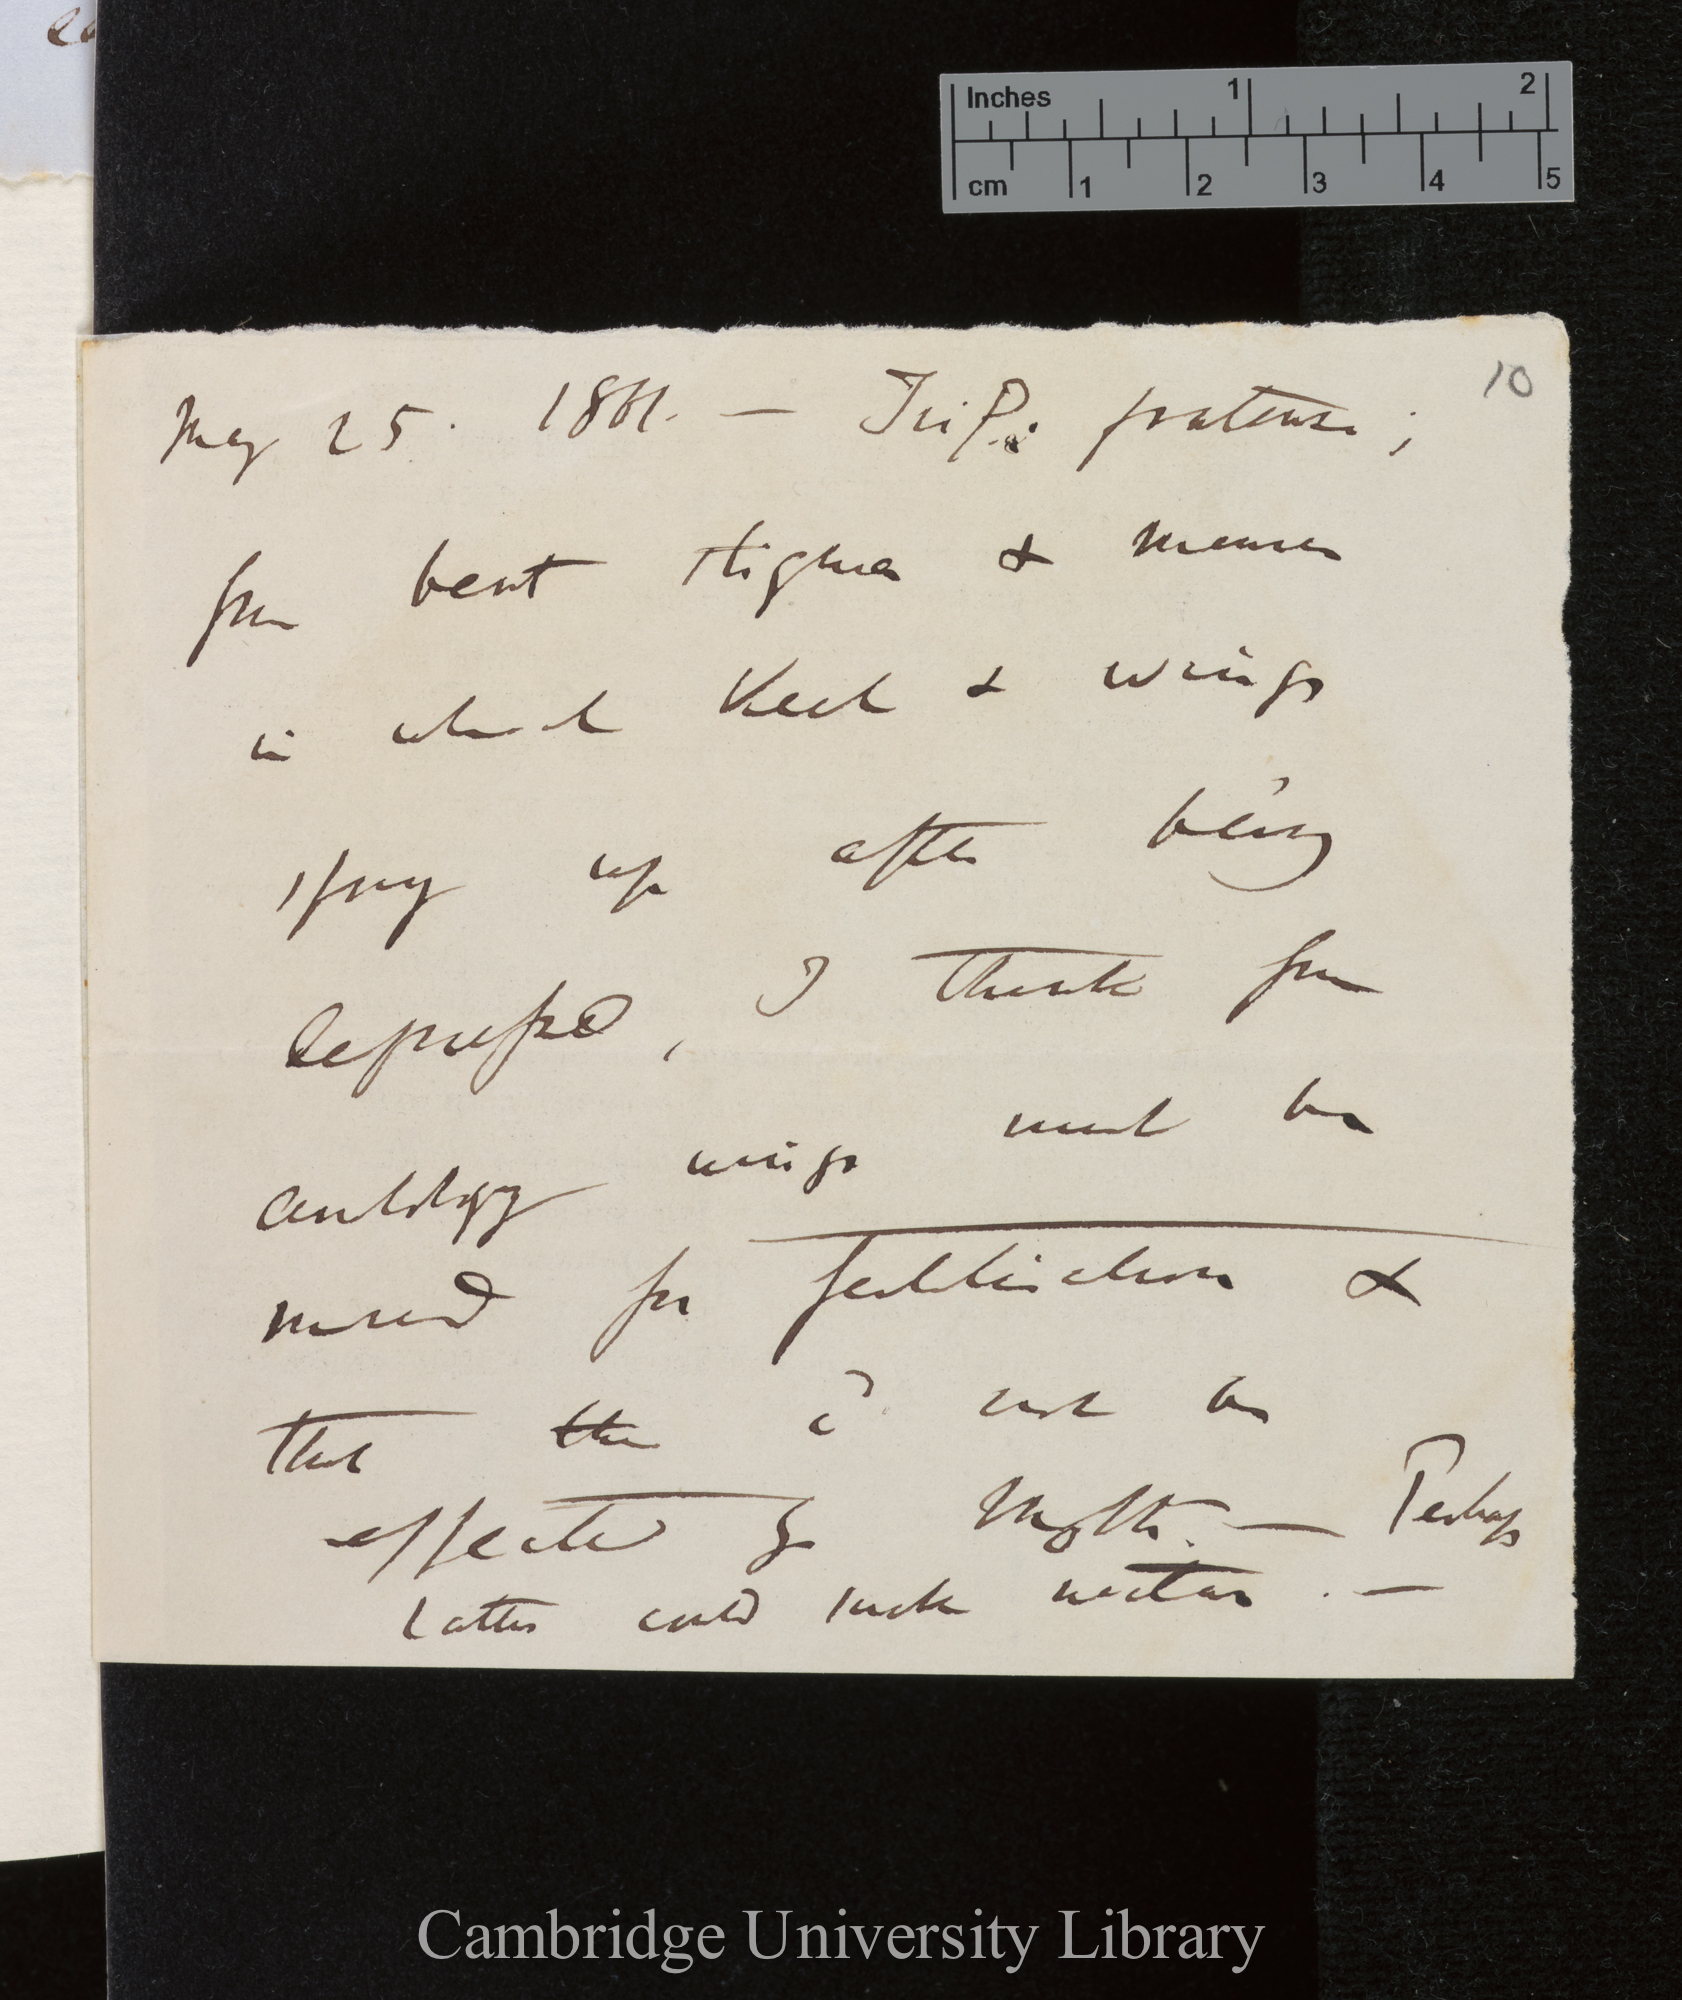 10
May 25. 1861. — Trif. pratense;
from bent stigma & manner
in which keel & wings
spring up after being
depressed, I think from
analogy wings must be
moved for fertilisation &
that the cd not be
effected by Moths. — Perhaps
latter could suck nectar. —
Inches 1 2
cm 1 2 3 4 5
Cambridge University Library